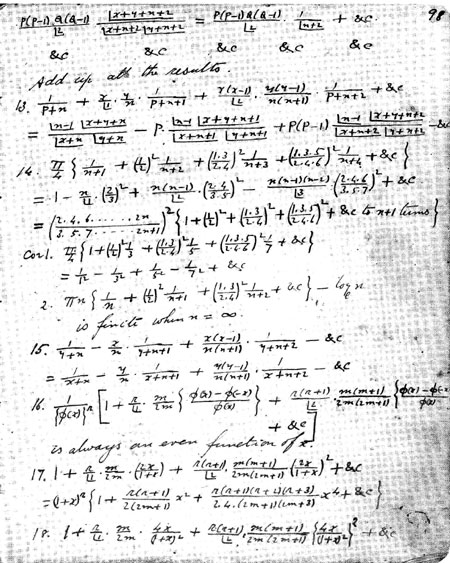 98
P(P-1)Q(Q-1)/|2 · |x+y+n+2/(|x+n+2 |y+n+2) = P(P-1)Q(Q-1)/|2 · 1/|n+2 + &c
&c &c &c &c &c
Add up all the results.
13. 1/(P+n) + x/|1 · y/n · 1/(P+n+1) + x(x-1)/|2 · y(y-1)/n(n+1) · 1/(P+n+2) + &c
= |n-1 |x+y+n/(|x+n |y+n) - P · |n-1 |x+y+n+1/(|x+n+1 |y+n+1) + P(P-1) |n-1 |x+y+n+2/(|x+n+2 |y+n+2) - &c
14. π/4 {1/(n+1) + (1/2)² 1/(n+2) + (1.3/2.4)² 1/(n+3) + (1.3.5/2.4.6)² 1/(n+4) + &c}
= 1 - n/|1 · (2/3)² + n(n-1)/|2 · (2.4/3.5)² - n(n-1)(n-2)/|3 · (2.4.6/3.5.7)² + &c
= (2.4.6......2n/3.5.7......2n+1)² {1 + (1/2)² + (1.3/2.4)² + (1.3.5/2.4.6)² + &c to n+1 terms}
Cor 1. π/4 {1 + (1/2)² 1/3 + (1.3/2.4)² 1/5 + (1.3.5/2.4.6)² 1/7 + &c}
= 1/1² - 1/3² + 1/5² - 1/7² + &c
2. πn {1/n + (1/2)² 1/(n+1) + (1.3/2.4)² 1/(n+2) + &c} - log n
is finite when n = ∞
15. 1/(y+n) - x/n · 1/(y+n+1) + x(x-1)/n(n+1) · 1/(y+n+2) - &c
= 1/(x+n) - y/n · 1/(x+n+1) + y(y-1)/n(n+1) · 1/(x+n+2) - &c
16. 1/{φ(x)}ⁿ [1 + n/|1 · m/2m {φ(x)-φ(-x)/φ(x)} + n(n+1)/|2 · m(m+1)/2m(2m+1) {φ(x)-φ(-x)/φ(x)
+ &c]
is always an even function of x.
17. 1 + n/|1 · m/2m · (2x/1+x) + n(n+1)/|2 · m(m+1)/2m(2m+1) (2x/1+x)² + &c
= (1+x)ⁿ {1 + n(n+1)/2(2m+1) x² + n(n+1)(n+2)(n+3)/2.4.(2m+1)(2m+3) x⁴ + &c}
18. 1 + n/|1 · m/2m · 4x/(1+x)² + n(n+1)/|2 · m(m+1)/2m(2m+1) {4x/(1+x)²}² + &c